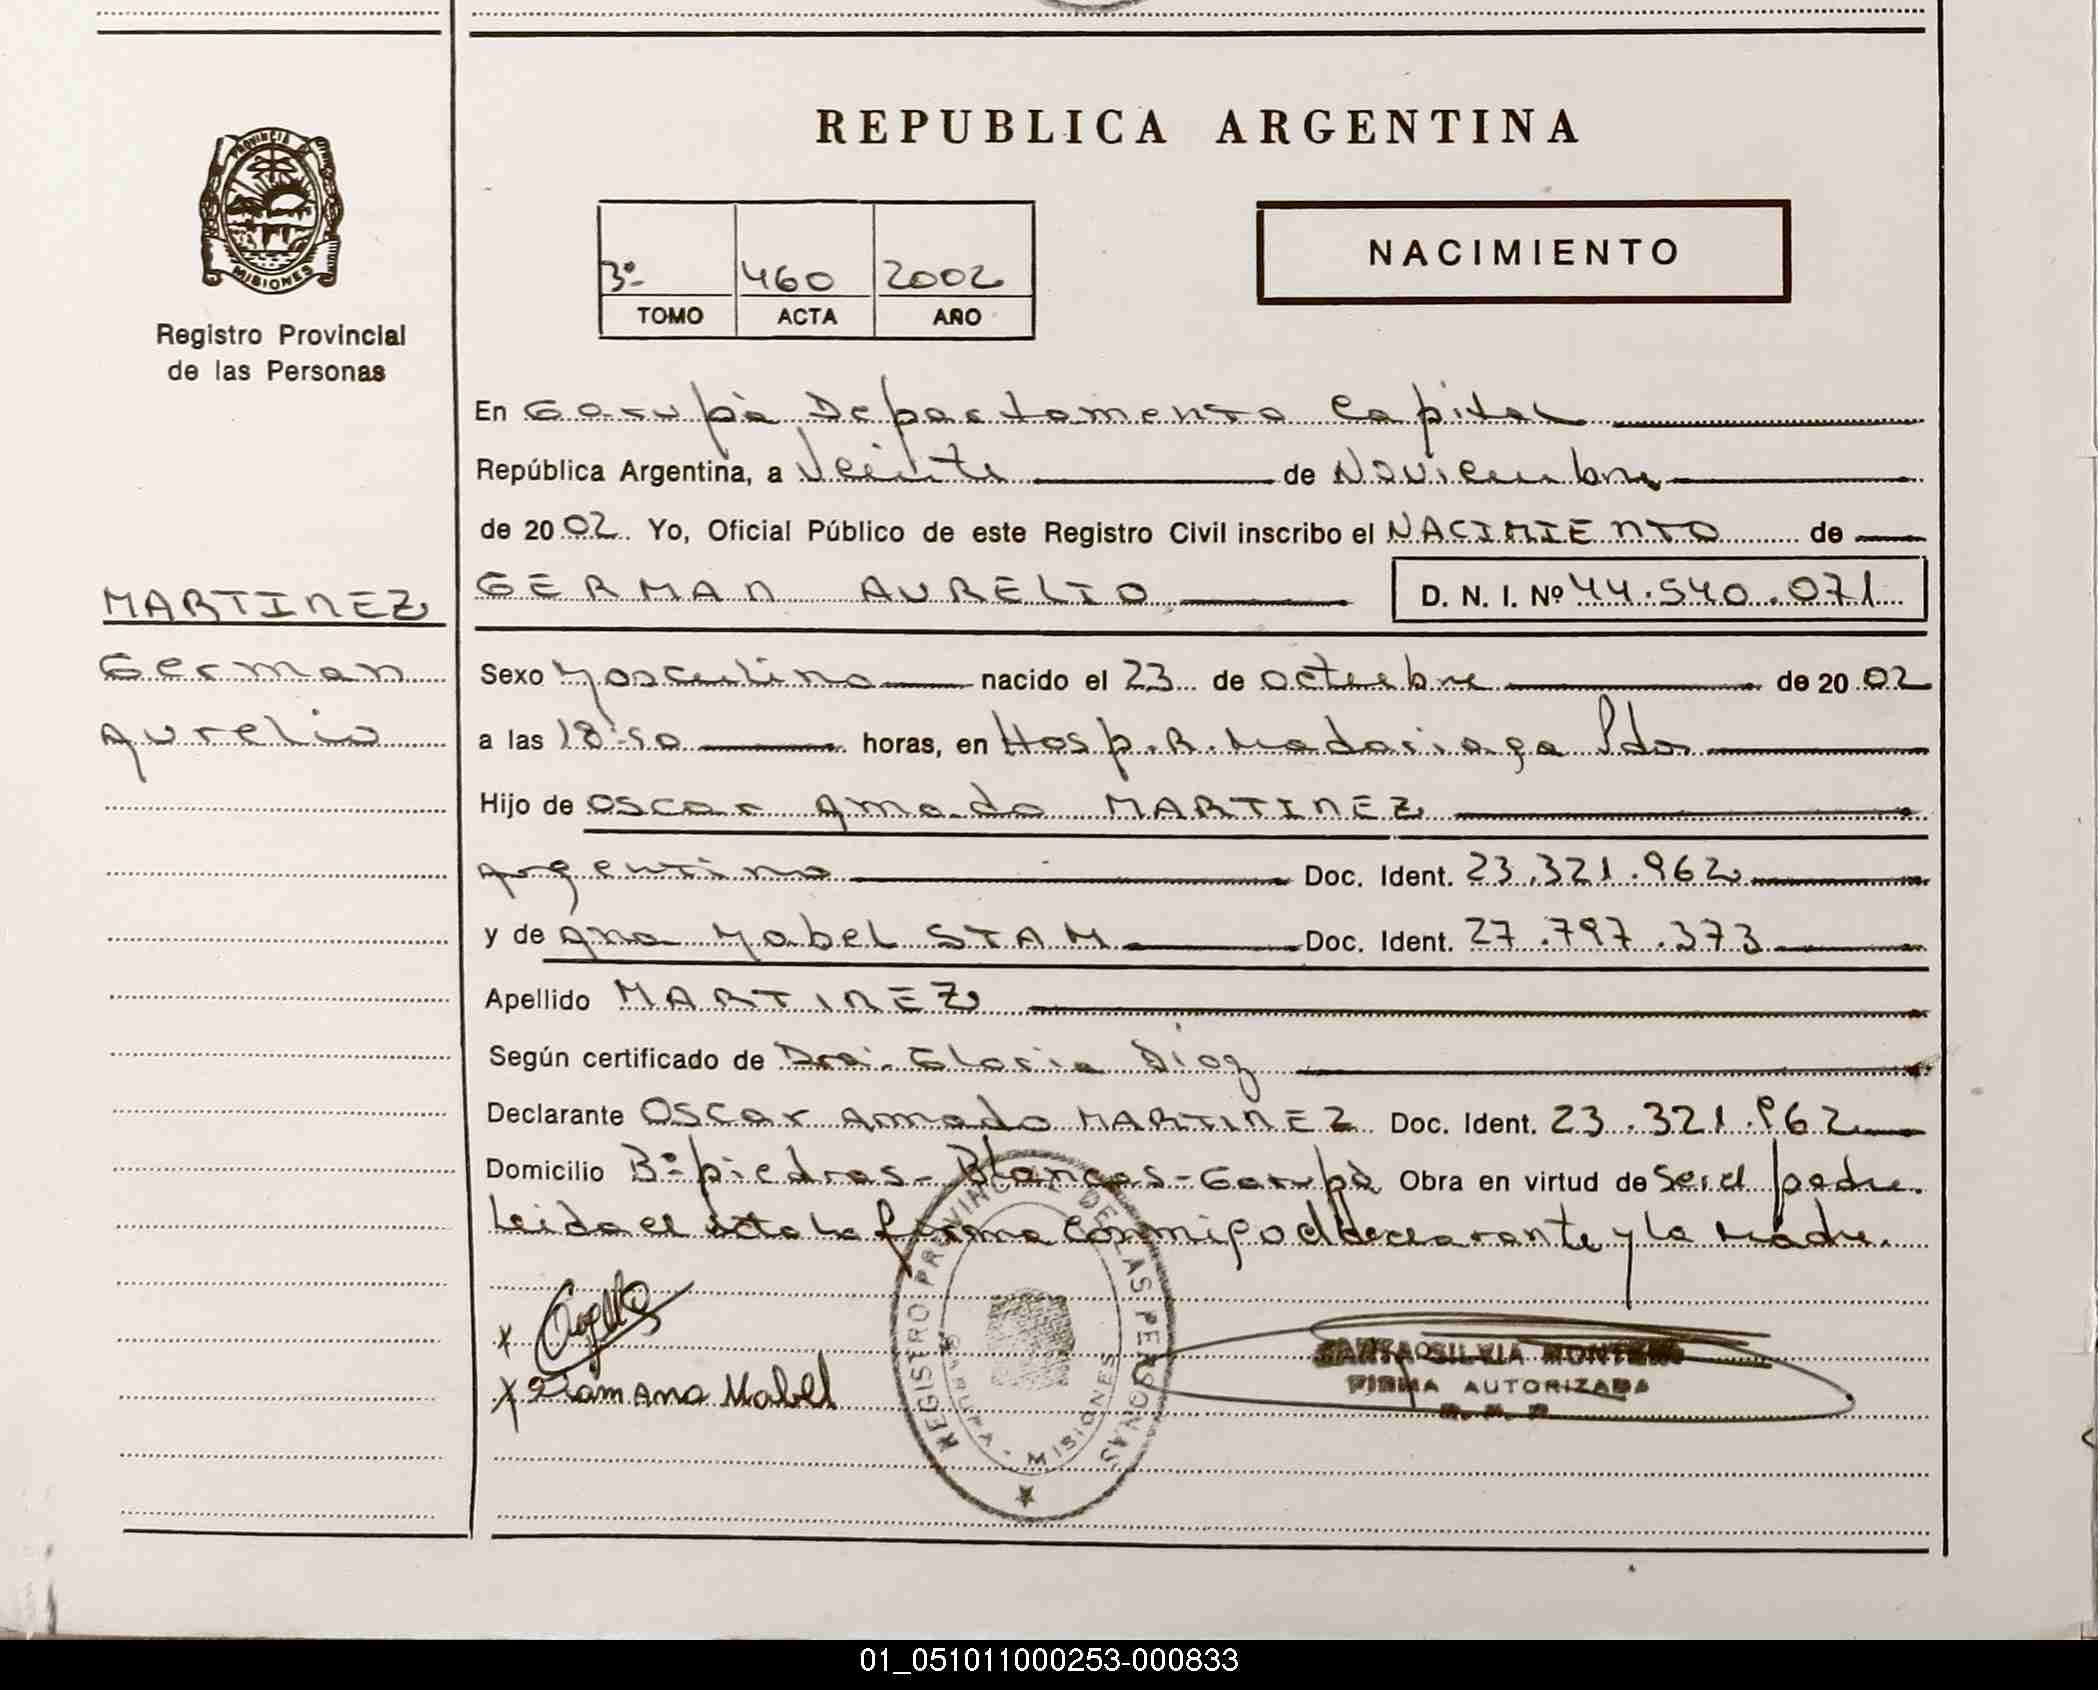 REPUBLICA ARGENTINA
PROVINCIA
MISIONES
Registro Provincial
de las Personas
3º 460 2002
TOMO ACTA AÑO
NACIMIENTO
En Garupá Departamento Capital
República Argentina, a Veinte de Noviembre
de 2002. Yo, Oficial Público de este Registro Civil inscribo el NACIMIENTO de
MARTINEZ
German
Aurelio
GERMAN AURELIO D. N. I. Nº 44.540.071
Sexo Masculino nacido el 23 de octubre de 2002
a las 18:50 horas, en Hosp. R. Madariaga Pdas
Hijo de Oscar Amado MARTINEZ
Argentino Doc. Ident. 23.321.962
y de Ana Mabel STAM Doc. Ident. 27.797.373
Apellido MARTINEZ
Según certificado de Dra. Gloria Diaz
Declarante Oscar Amado MARTINEZ Doc. Ident. 23.321.962
Domicilio Bº piedras-Blancas-Garupá Obra en virtud de ser el padre.
Leida el acta la firma conmigo el declarante y la Madre.
x
x Stam Ana Mabel
REGISTRO PROVINCIAL DE LAS PERSONAS
GARUPA - MISIONES
SILVIA
FIRMA AUTORIZADA
01_051011000253-000833